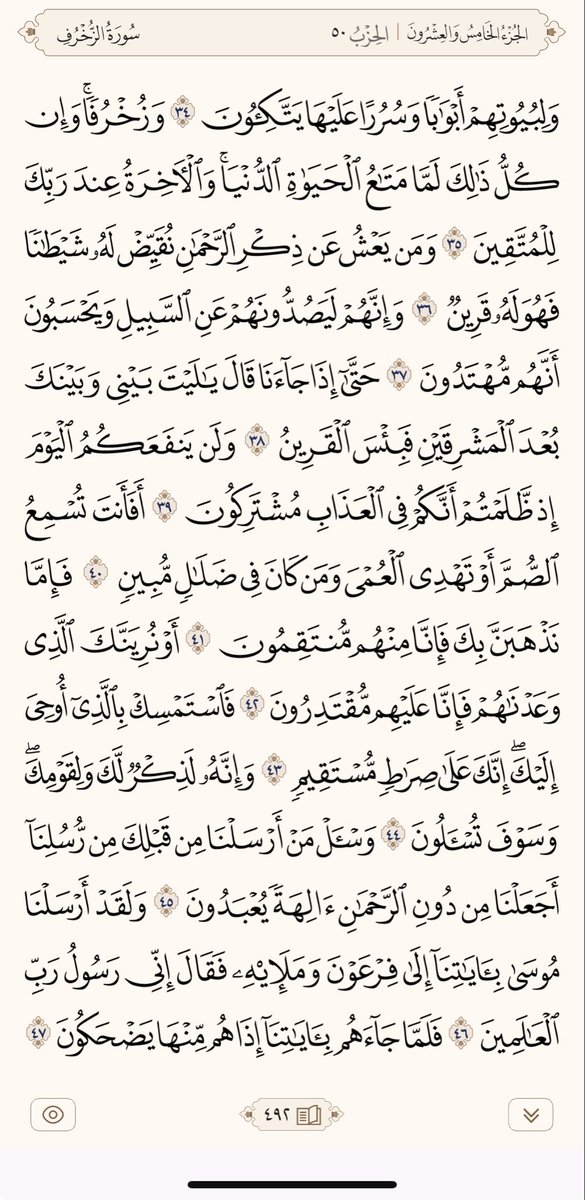 الجُزْءُ الخَامِسُ وَالعِشْرُونَ | الحِزْبُ ٥٠
سُورَةُ الزُّخْرُفِ
وَلِبُيُوتِهِمْ أَبْوَٰبًا وَسُرُرًا عَلَيْهَا يَتَّكِـُٔونَ ٣٤ وَزُخْرُفًاۚ وَإِن
كُلُّ ذَٰلِكَ لَمَّا مَتَـٰعُ ٱلْحَيَوٰةِ ٱلدُّنْيَاۚ وَٱلْـَٔاخِرَةُ عِندَ رَبِّكَ
لِلْمُتَّقِينَ ٣٥ وَمَن يَعْشُ عَن ذِكْرِ ٱلرَّحْمَـٰنِ نُقَيِّضْ لَهُۥ شَيْطَـٰنًا
فَهُوَ لَهُۥ قَرِينٌ ٣٦ وَإِنَّهُمْ لَيَصُدُّونَهُمْ عَنِ ٱلسَّبِيلِ وَيَحْسَبُونَ
أَنَّهُم مُّهْتَدُونَ ٣٧ حَتَّىٰٓ إِذَا جَآءَنَا قَالَ يَـٰلَيْتَ بَيْنِى وَبَيْنَكَ
بُعْدَ ٱلْمَشْرِقَيْنِ فَبِئْسَ ٱلْقَرِينُ ٣٨ وَلَن يَنفَعَكُمُ ٱلْيَوْمَ
إِذ ظَّلَمْتُمْ أَنَّكُمْ فِى ٱلْعَذَابِ مُشْتَرِكُونَ ٣٩ أَفَأَنتَ تُسْمِعُ
ٱلصُّمَّ أَوْ تَهْدِى ٱلْعُمْىَ وَمَن كَانَ فِى ضَلَـٰلٍ مُّبِينٍ ٤٠ فَإِمَّا
نَذْهَبَنَّ بِكَ فَإِنَّا مِنْهُم مُّنتَقِمُونَ ٤١ أَوْ نُرِيَنَّكَ ٱلَّذِى
وَعَدْنَـٰهُمْ فَإِنَّا عَلَيْهِم مُّقْتَدِرُونَ ٤٢ فَٱسْتَمْسِكْ بِٱلَّذِىٓ أُوحِىَ
إِلَيْكَۖ إِنَّكَ عَلَىٰ صِرَٰطٍ مُّسْتَقِيمٍ ٤٣ وَإِنَّهُۥ لَذِكْرٌ لَّكَ وَلِقَوْمِكَۖ
وَسَوْفَ تُسْـَٔلُونَ ٤٤ وَسْـَٔلْ مَنْ أَرْسَلْنَا مِن قَبْلِكَ مِن رُّسُلِنَآ
أَجَعَلْنَا مِن دُونِ ٱلرَّحْمَـٰنِ ءَالِهَةً يُعْبَدُونَ ٤٥ وَلَقَدْ أَرْسَلْنَا
مُوسَىٰ بِـَٔايَـٰتِنَآ إِلَىٰ فِرْعَوْنَ وَمَلَإِي۟هِۦ فَقَالَ إِنِّى رَسُولُ رَبِّ
ٱلْعَـٰلَمِينَ ٤٦ فَلَمَّا جَآءَهُم بِـَٔايَـٰتِنَآ إِذَا هُم مِّنْهَا يَضْحَكُونَ ٤٧
٤٩٢